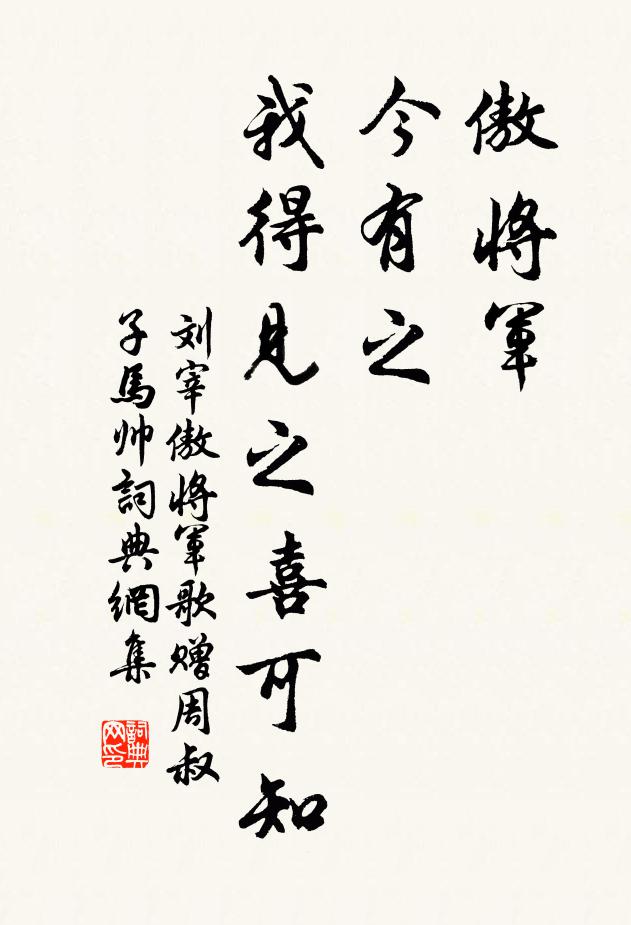 傲將軍
今有之
我得見之喜可知
刘宰傲將軍歌赠周叔
子馬帅詞典網集
詞典网印